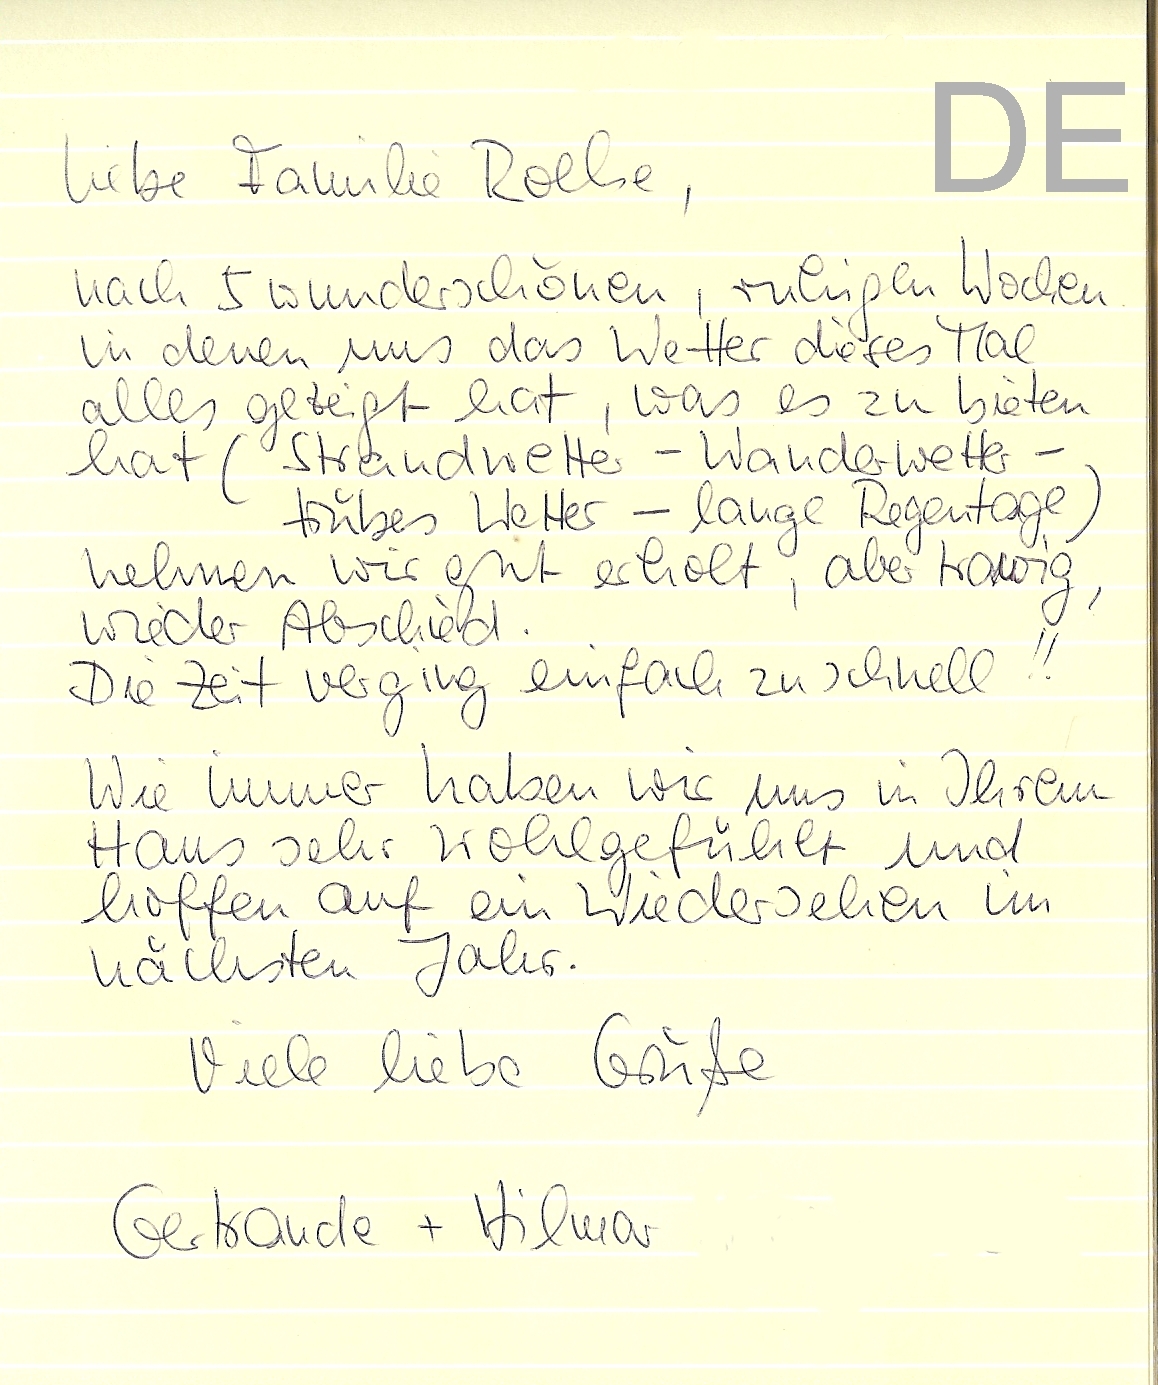 DE
Liebe Familie Rolke,
nach 5 wunderschönen, ruhigen Wochen
in denen uns das Wetter dieses Mal
alles gezeigt hat, was es zu bieten
hat ( Strandwetter - Wanderwetter -
trübes Wetter - lange Regentage)
nehmen wir gut erholt, aber traurig,
wieder Abschied.
Die Zeit verging einfach zu schnell !!
Wie immer haben wir uns in Ihrem
Haus sehr wohlgefühlt und
hoffen auf ein Wiedersehen im
nächsten Jahr.
Viele liebe Grüße
Gertraude + Hilmar